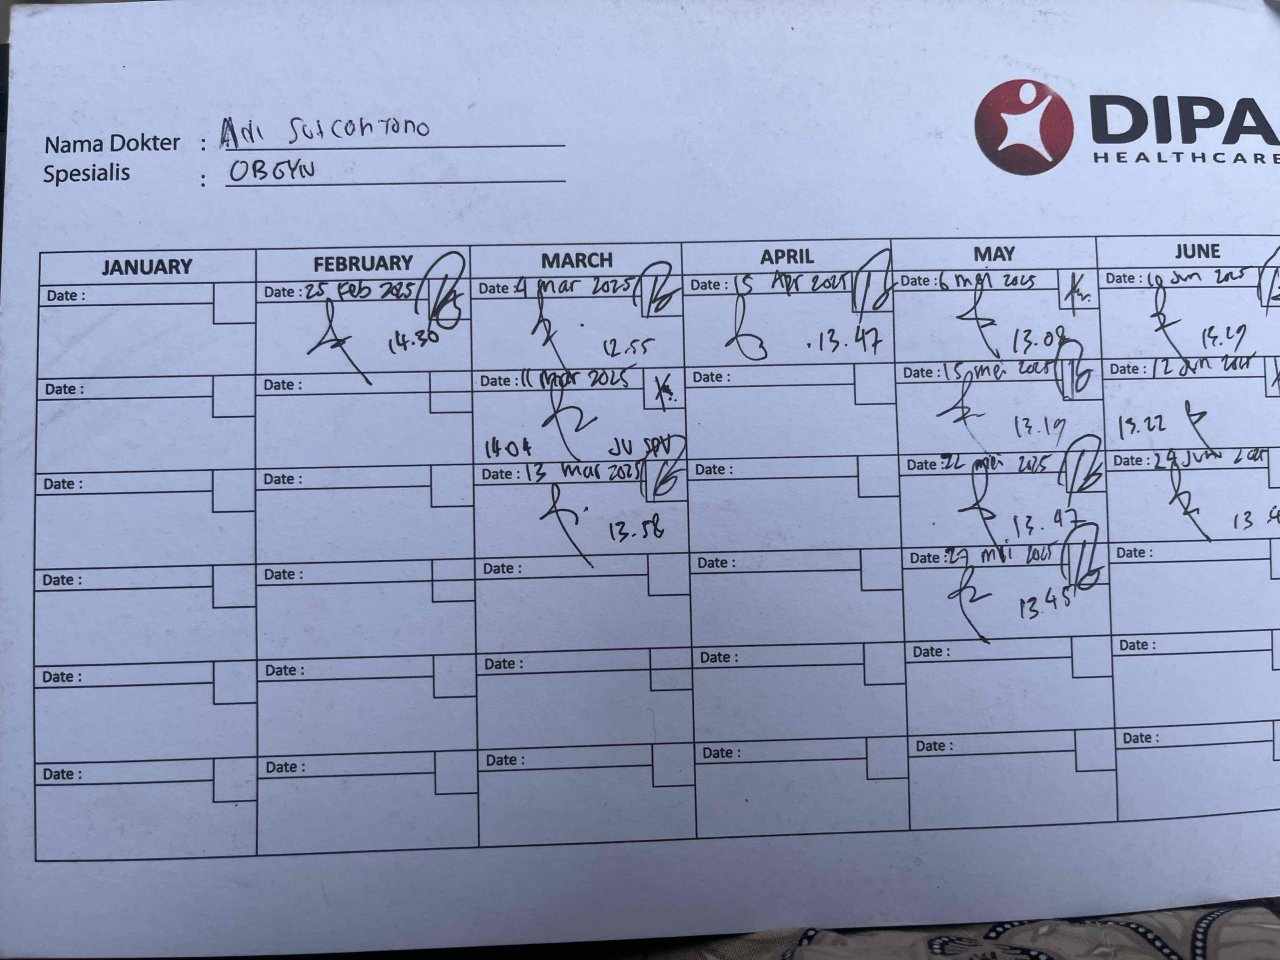 DIPA
HEALTHCARE
Nama Dokter :
Spesialis : OBGYN
JANUARY FEBRUARY MARCH APRIL MAY JUNE
Date : Date : 25 Feb 2025 Date : 4 mar 2025 Date : 15 Apr 2025 Date : 6 mei 2025 Jun 2025
14.30 12.55 13.47 13.08
Date : Date : Date : 11 mar 2025 Date : Date : 15 mei 2025 Date : 12 Jun 2025
14.04 JV SPV 13.19
Date : Date : Date : 13 mar 2025 Date : Date : 22 mei 2025 Date :
13.58 13.47
Date : Date : Date : Date : Date : 27 mei 2025 Date :
13.45
Date : Date : Date : Date : Date : Date :
Date : Date : Date : Date : Date : Date :